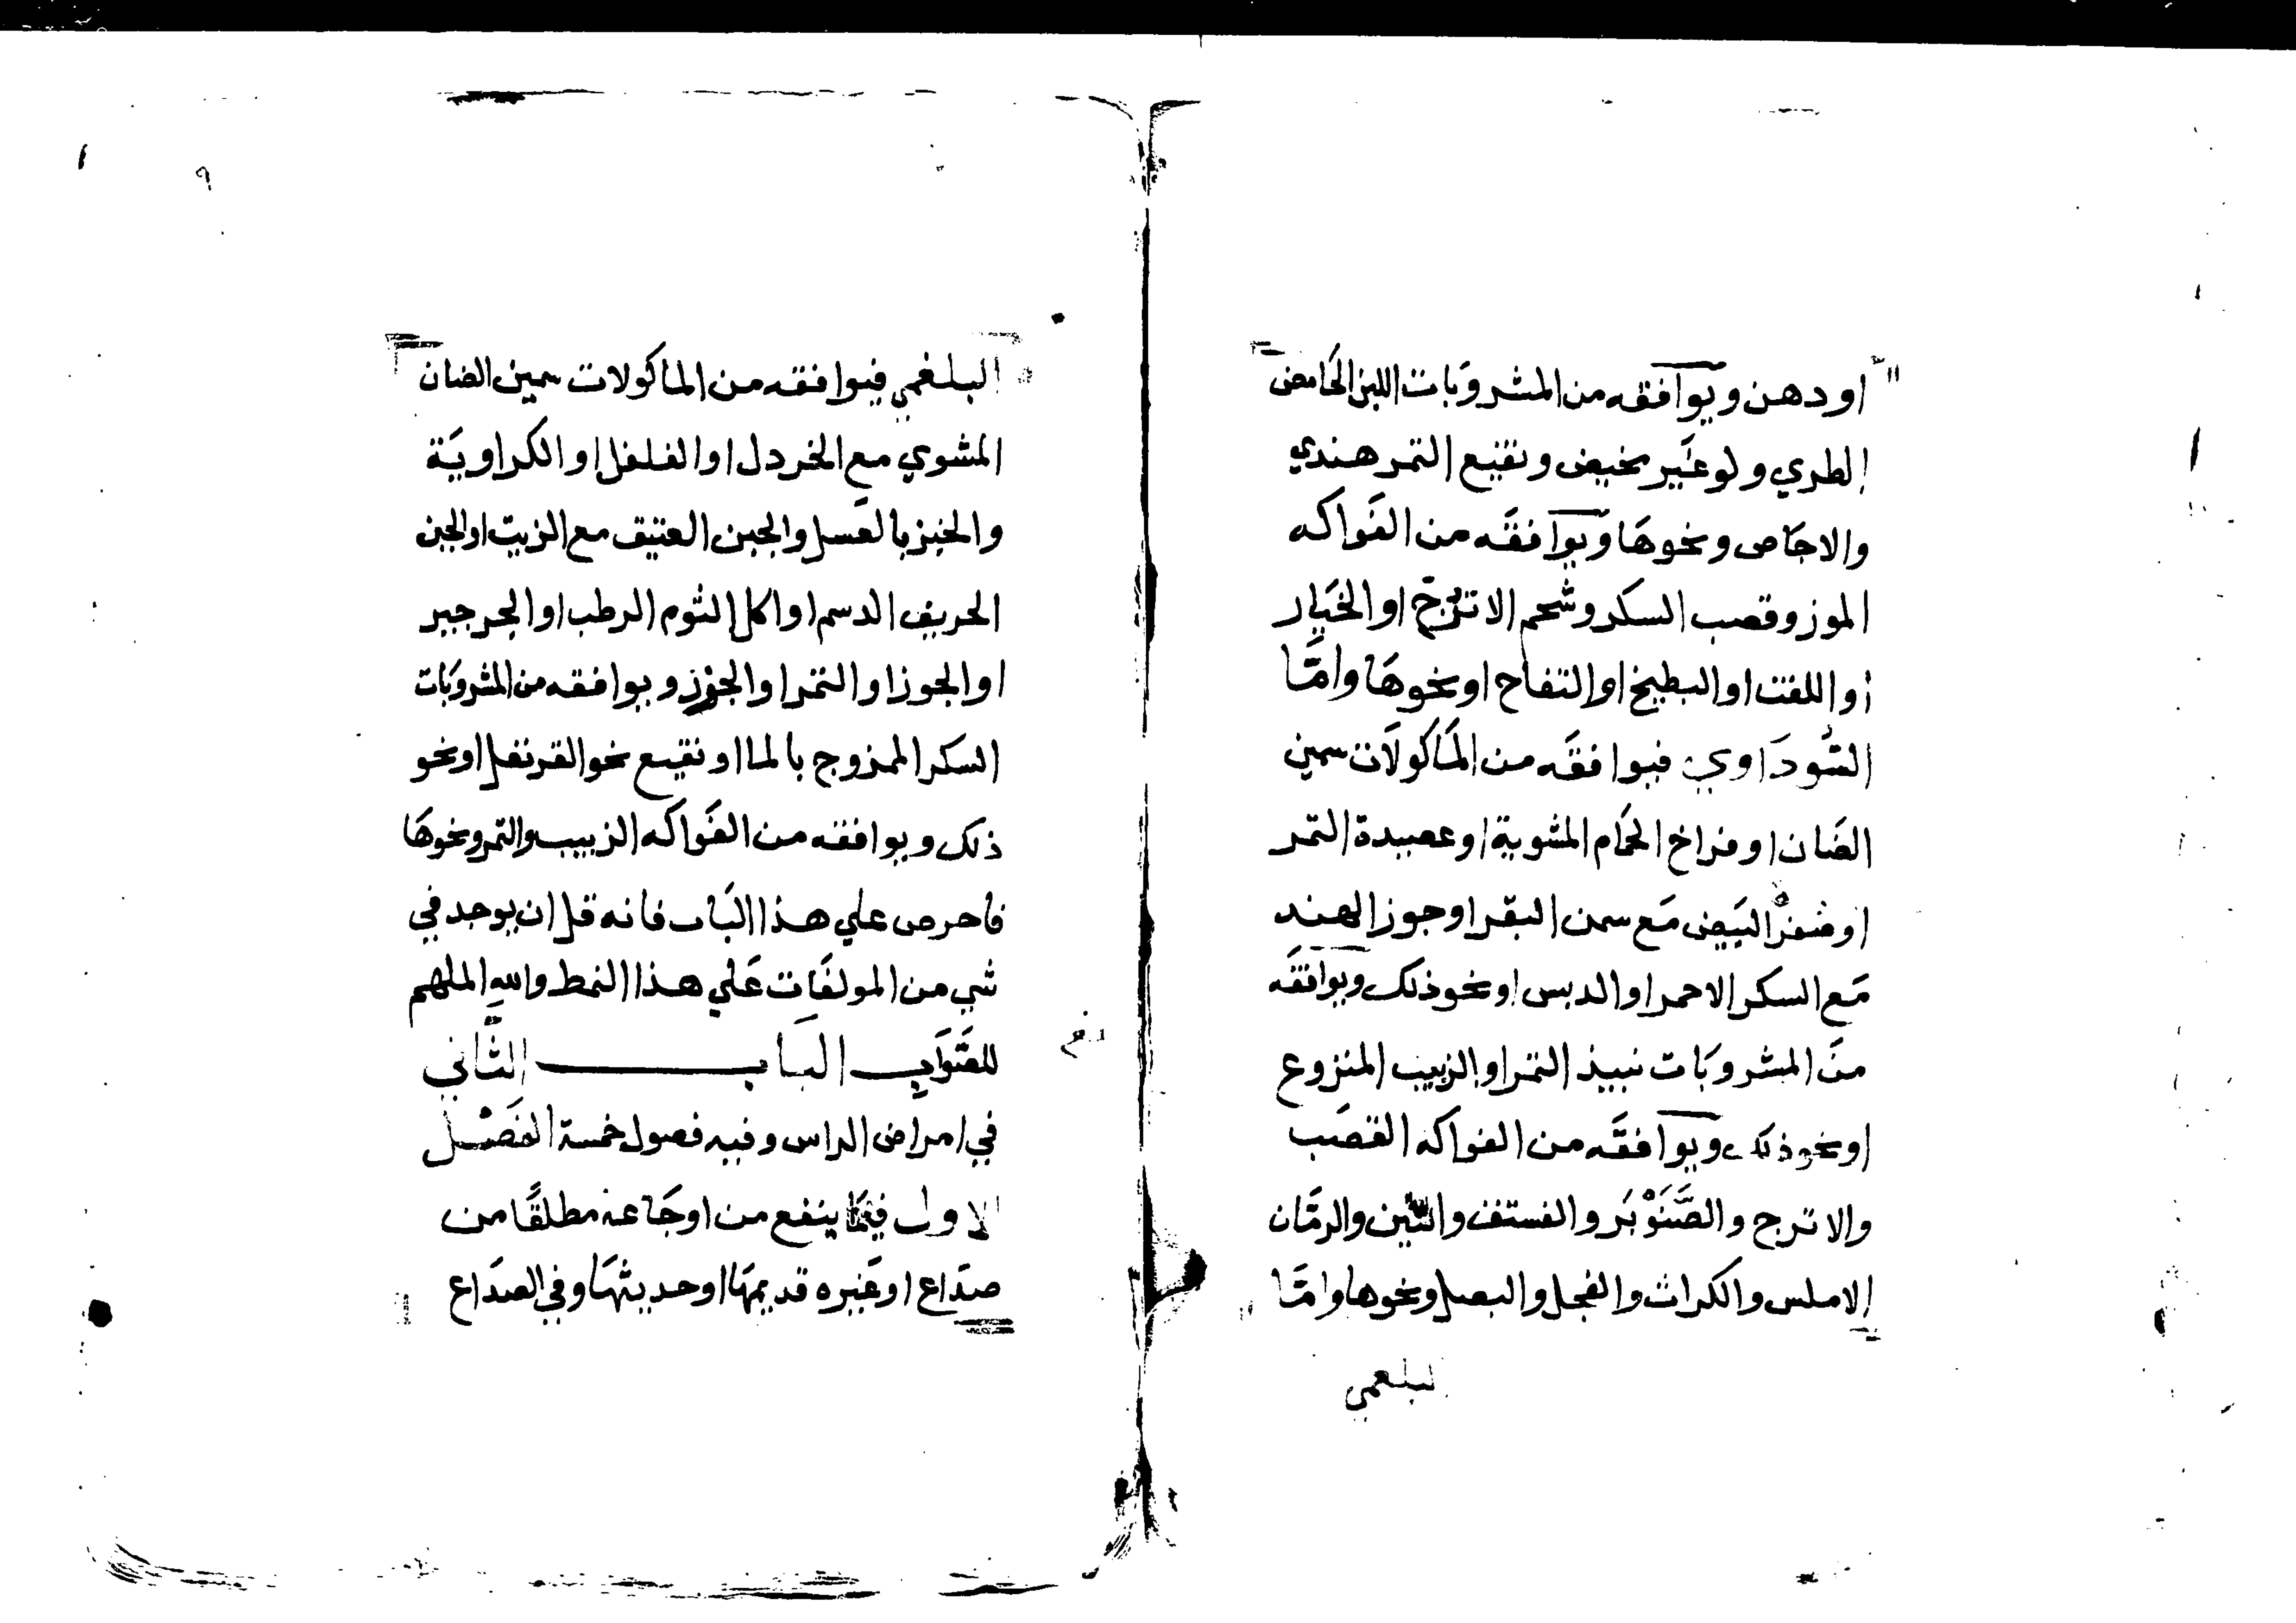 او دهن ويوافقه من المشروبات اللبن الحامض
الطري ولو غير مخيض ونقيع التمر هندي
والاجاص ونحوها ويوافقه من الفواكه
الموز وقصب السكر وشحم الاترج او الخيار
او اللفت او البطيخ او التفاح او نحوها واما
السوداوي فيوافقه من الماكولات سمين
الضان او فراخ الحمام المشوية او عصيدة التمر
او صفر البيض مع سمن البقر او جوز الهند
مع السكر الاحمر او الدبس او نحو ذلك ويوافقه
من المشروبات نبيذ التمر او الزبيب المنزوع
او نحو ذلك ويوافقه من الفواكه القصب
والاترج والصنوبر والفستق والتين والرمان
الاملس والكراث والفجل والبصل ونحوها واما
البلغمي
٩
البلغمي فيوافقه من الماكولات سمين الضان
المشوي مع الخردل او الفلفل او الكراوية
والخبز بالعسل والجبن العتيق مع الزيت او الجبن
الحريف الدسم او اكل الثوم الرطب او الجرجير
او الجوز او التمر او الجوز ويوافقه من المشروبات
السكر الممزوج بالما او نقيع نحو القرنفل او نحو
ذلك ويوافقه من الفواكه الزبيب والتمر ونحوها
فاحرص علي هذا الباب فانه قل ان يوجد في
شي من المولفات علي هذا النمط والله الملهم
للصواب الباب الثاني
في امراض الراس وفيه فصول خمسة الفصل
الاول فيما ينفع من اوجاعه مطلقا من
صداع او غيره قديمها او حديثها وفي الصداع